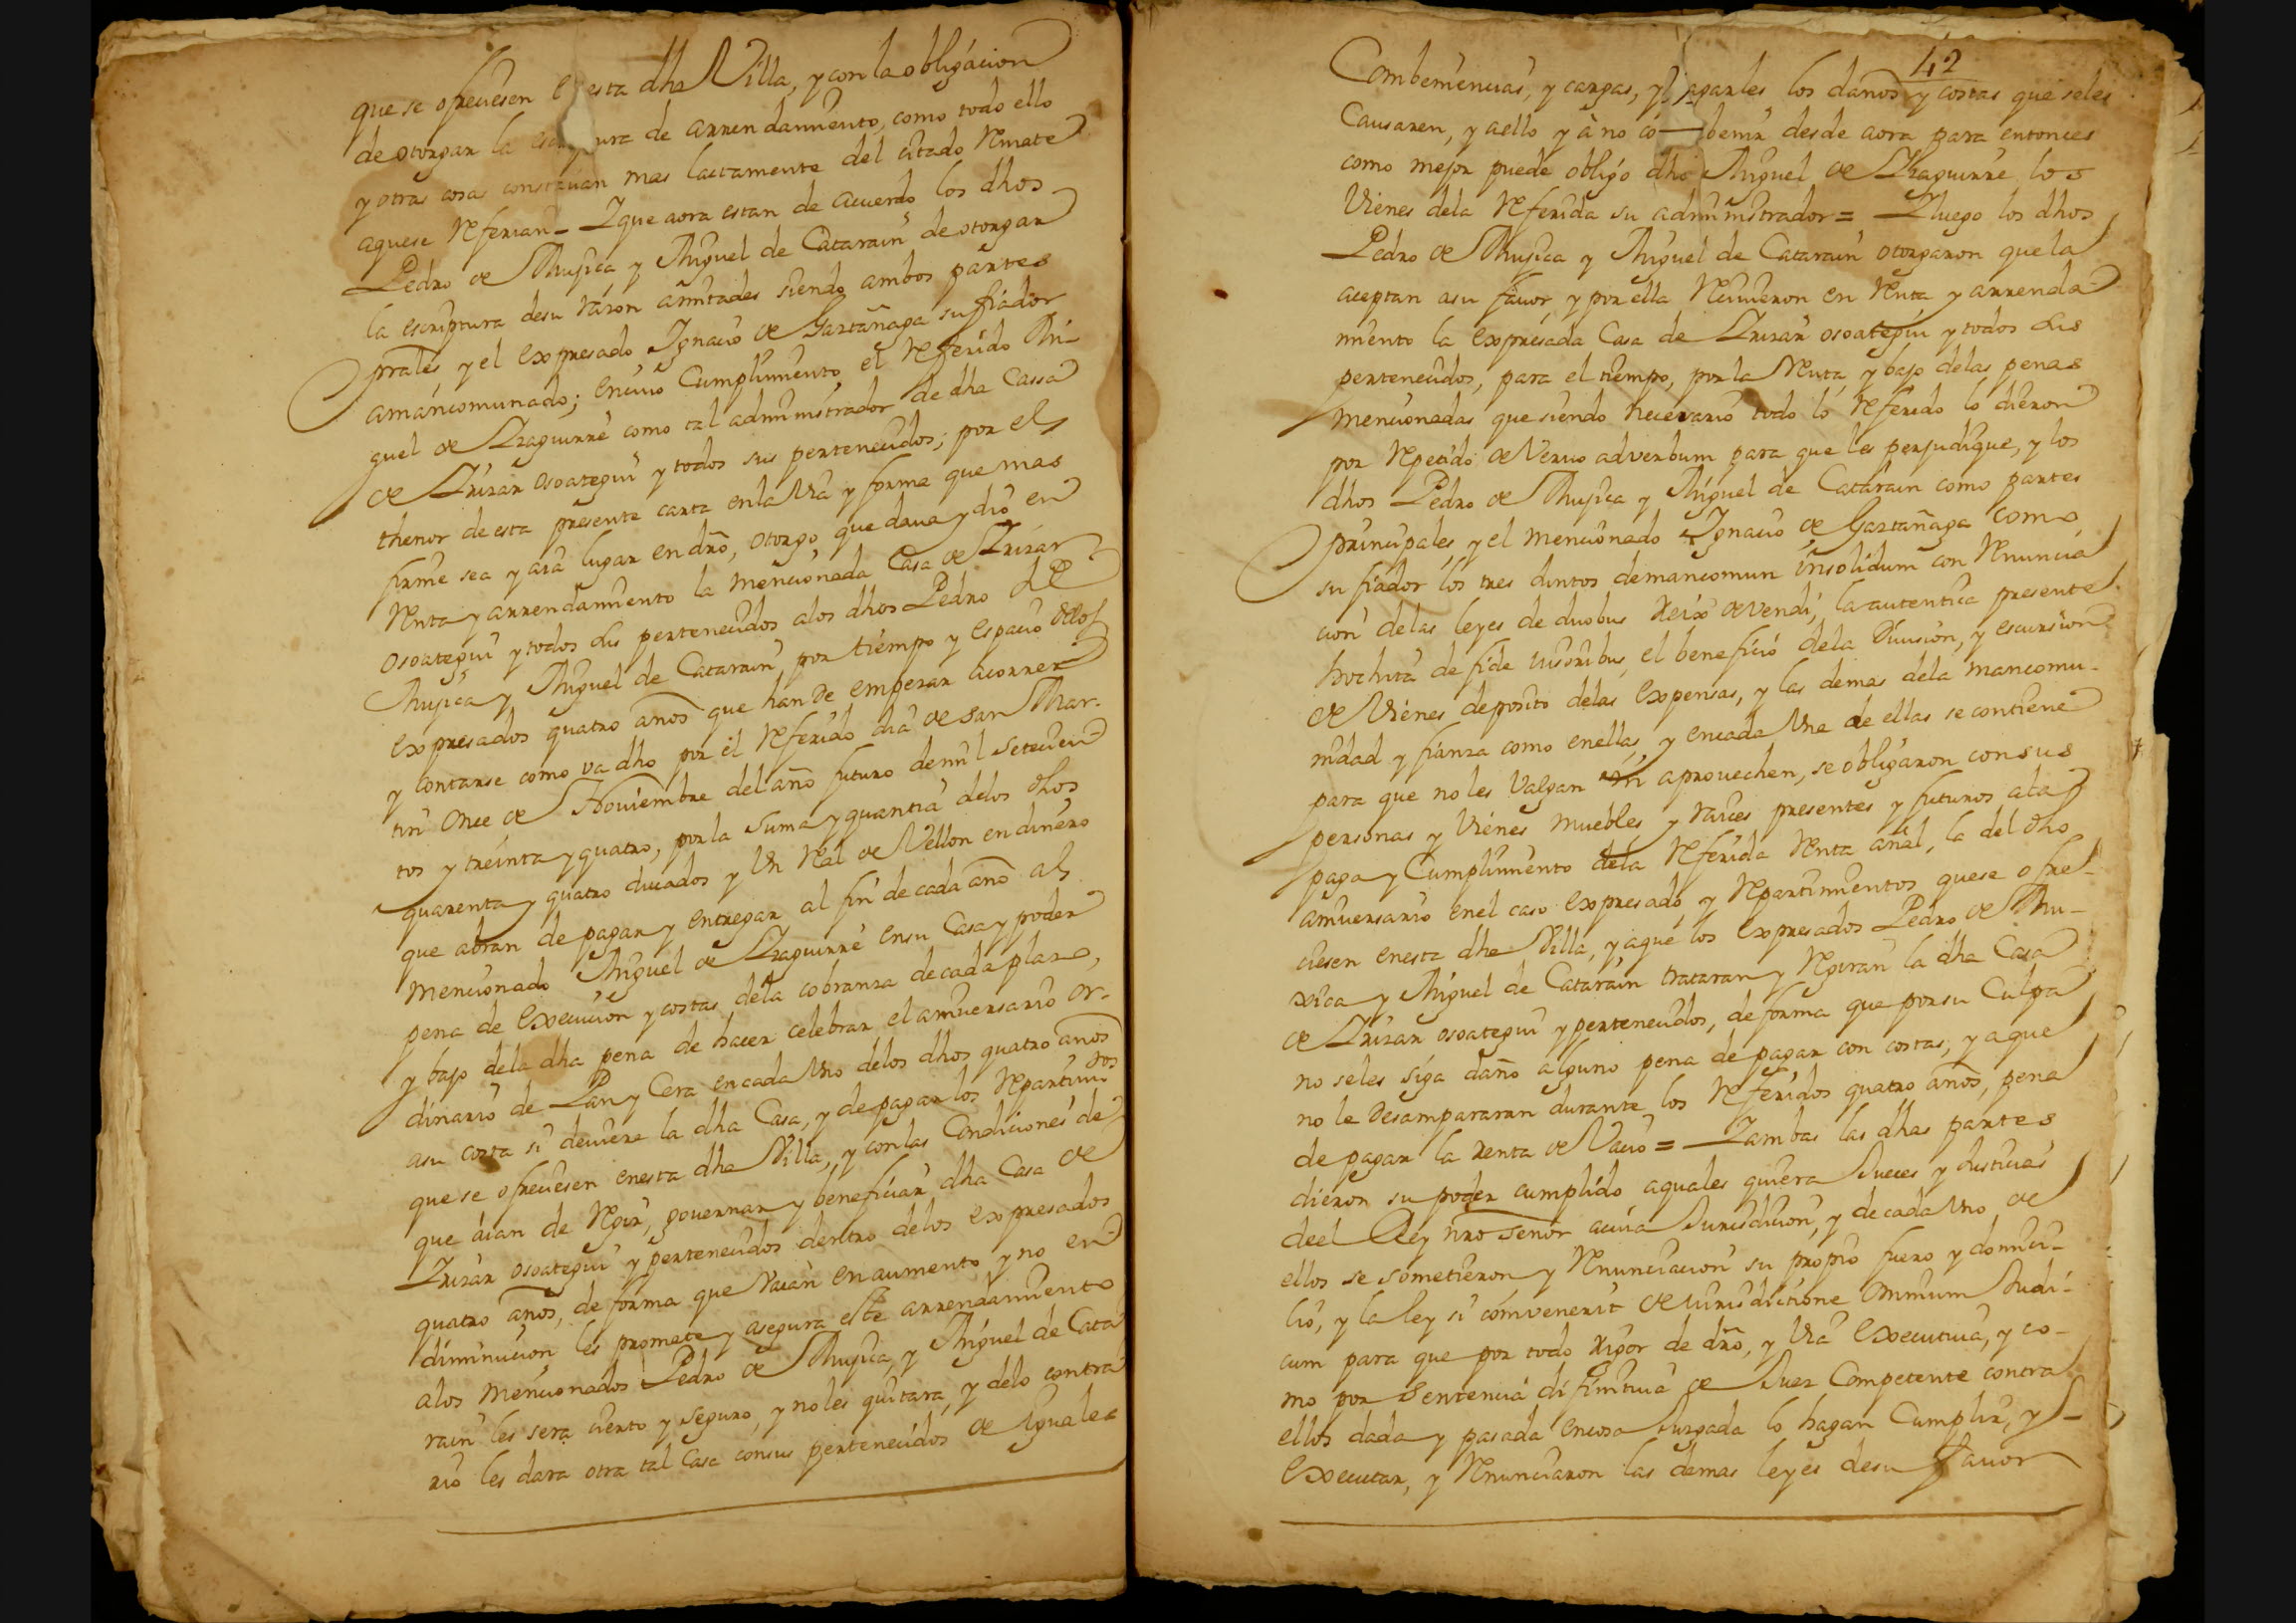 que se ofreciesen esta dha Villa, y con la obligacion
de otorgar la escriptura de arrendamiento, como todo ello
y otras cosas constauan mas lactamente del citado Remate
aquese Referian = Y que aora estan de acuerdo los dhos
Pedro de Mugica y Miguel de Catarain de otorgar
la escriptura desu raron amitades siendo ambos partes
prales y el expresado Ignacio de Gastañaga su fiador
amancomunado; en cuio Cumplimiento el Referido Mi-
guel de Yraguirre como tal administrador de dha Cassa
de Yrirar osoategui y todos sus pertenecidos; por el
thenor de esta presente carta enla Via y forma que mas
firme sea y aia lugar en dro, otorgo que daua y dio en
Renta y arrendamiento la mencionada Casa de Yrirar
Osoategui y todos sus pertenecidos alos dhos Pedro de
Mugica y Miguel de Catarain, por tiempo y espacio delos
expresados quatro años que han de emperar acorrer
y contarse como va dho por el Referido dia de San Mar-
tin Once de Noviembre del año futuro demil setecien
tos y treinta y quatro, por la Suma y quantia delos dhos
quarenta y quatro ducados y Un Real de Vellon en dinero
que abran de pagar y entregar al fin de cada año al
mencionado Miguel de Yraguirre ensu Casa y poder
pena de execucion y costas dela cobranra de cada plaro,
y bajo dela dha pena de hacer celebrar el aniversario or-
dinario de Pan y Cera en cada Uno delos dhos quatro años
asu costa si deuiere la dha Casa, y de pagar los Repartimdos
que se ofreciesen enesta dha Villa, y con las Condiciones de
que aian de Regir, gouernar y beneficiar dha Casa de
Yrirar osoategui y pertenecidos dentro delos expresados
quatro años, de forma que Vaian en aumento, y no en
diminucion les promete y asegura este arrendamiento
alos mencionados Pedro de Mugica, y Miguel de Cata
rain les sera cierto y seguro, y noles quitara, y delo contra
rio les dara otra tal Casa consus pertenecidos de Iguales
42
Combeniencias, y cargas, y pagarles los daños y costas que seles
Causaren, y aello y à no co-benir desde aora para entonces
como mejor puede obligó dho Miguel de Yraguirre los
Vienes dela Referida su administrador = Y luego los dhos
Pedro de Mugica y Miguel de Catarain otorgaron que la
aceptan asu fauor, y por ella Reciuieron en Renta y arrenda-
miento la expresada Casa de Yrirar osoategui y todos sus
pertenecidos, para el tiempo, por la Renta, y bajo delas penas
mencionadas que siendo necesario todo lo Referido lo dieron
por Repetido de Veruo adverbum para que les perjudique, y los
dhos Pedro de Mugica y Miguel de Catarain como partes
principales, y el mencionado Ignacio de Gastañaga como
su fiador los tres Juntos demancomun insolidum con Renuncia
cion delas leyes de duobus Reix devendi, la autentica presente
hochita de fide iusoribus, el beneficio dela Diuision, y escursion
de Vienes, deposito delas expensas, y las demas dela mancomu-
nidad y fianra como enellas, y encada Una de ellas se contiene
para que noles Valgan ni aprouechen, se obligaron consus
personas y Vienes muebles y raices presentes y futuros ala
paga y Cumplimiento dela Referida Renta añal, la del dho
aniversario enel caso expresado, y Repartimientos quese ofre-
ciesen enesta dha Villa, y aque los expresados Pedro de Mu-
xica y Miguel de Catarain trataran y Regiran la dha Casa
de Yrirar osoategui y pertenecidos, de forma que por su Culpa
no seles siga daño alguno pena de pagar con costas; y aque
no le desampararan durante los Referidos quatro años, pena
de pagar la renta de Vacio = Y ambas las dhas partes
dieron su poder cumplido aquales quiera Jueces y Justicias
deel Rey nro señor acuia Jurisdicion, y de cada Uno de
ellos se sometieron y Renunciacion su propio fuero y domici-
lio, y la ley si comvenerit de iurisdictione omnium Judi-
cum para que por todo rigor de dro, y Via executiua, y co-
mo por Sentencia difinitiua de Juez Competente contra
ellos dada y pasada encosa Jurgada lo hagan Cumplir, y
executar, y Renunciaron las demas leyes desu fauor